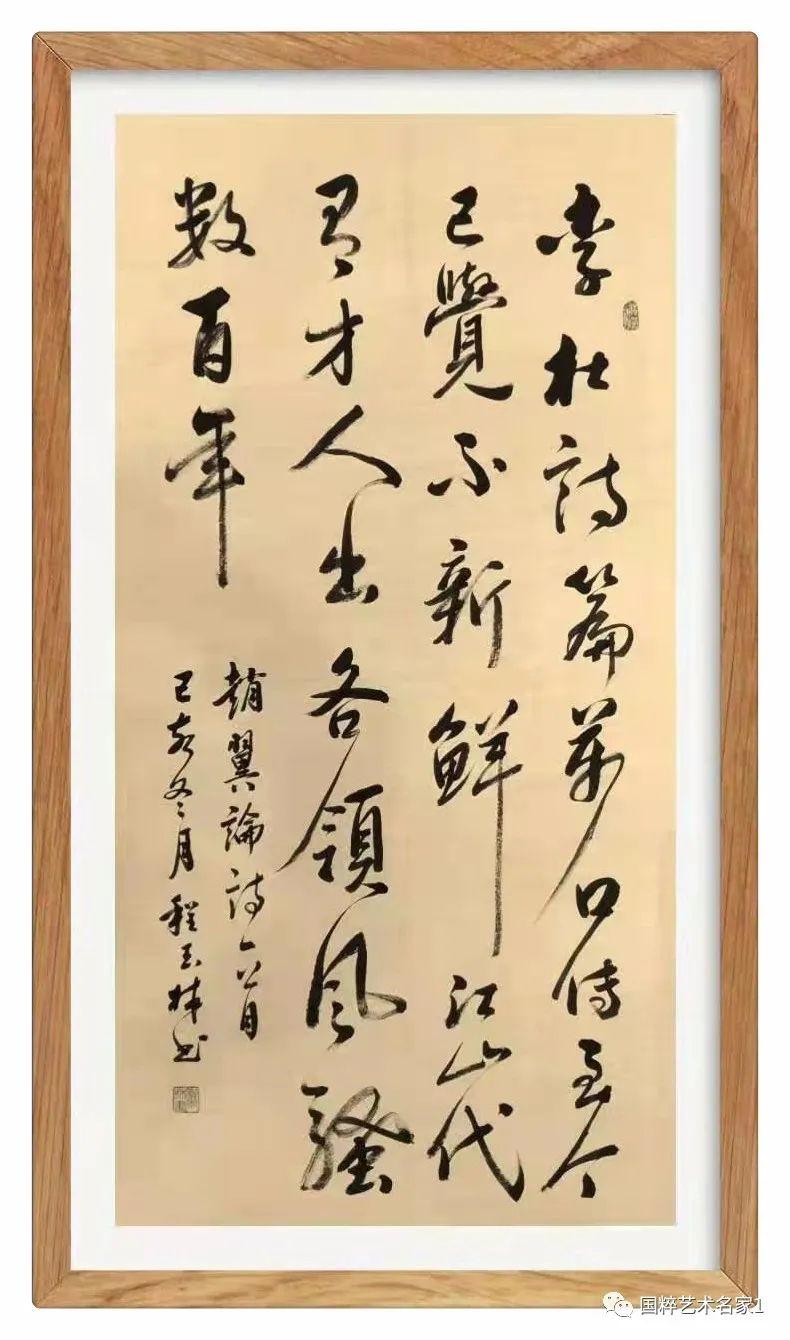 李杜詩篇萬口傳至今
已覺不新鮮江山代
有才人出各領風騷
数百年
趙翼論詩一首
己亥冬月程玉林书
国粹艺术名家1